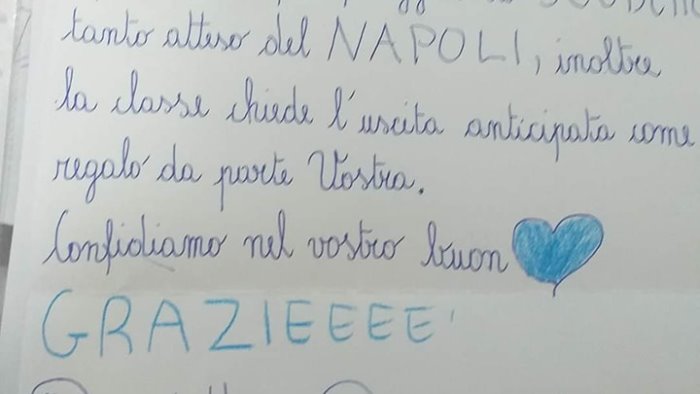 tanto atteso del NAPOLI, inoltre
la classe chiede l'uscita anticipata come
regalo da parte Vostra.
Confidiamo nel vostro buon
GRAZIEEEE